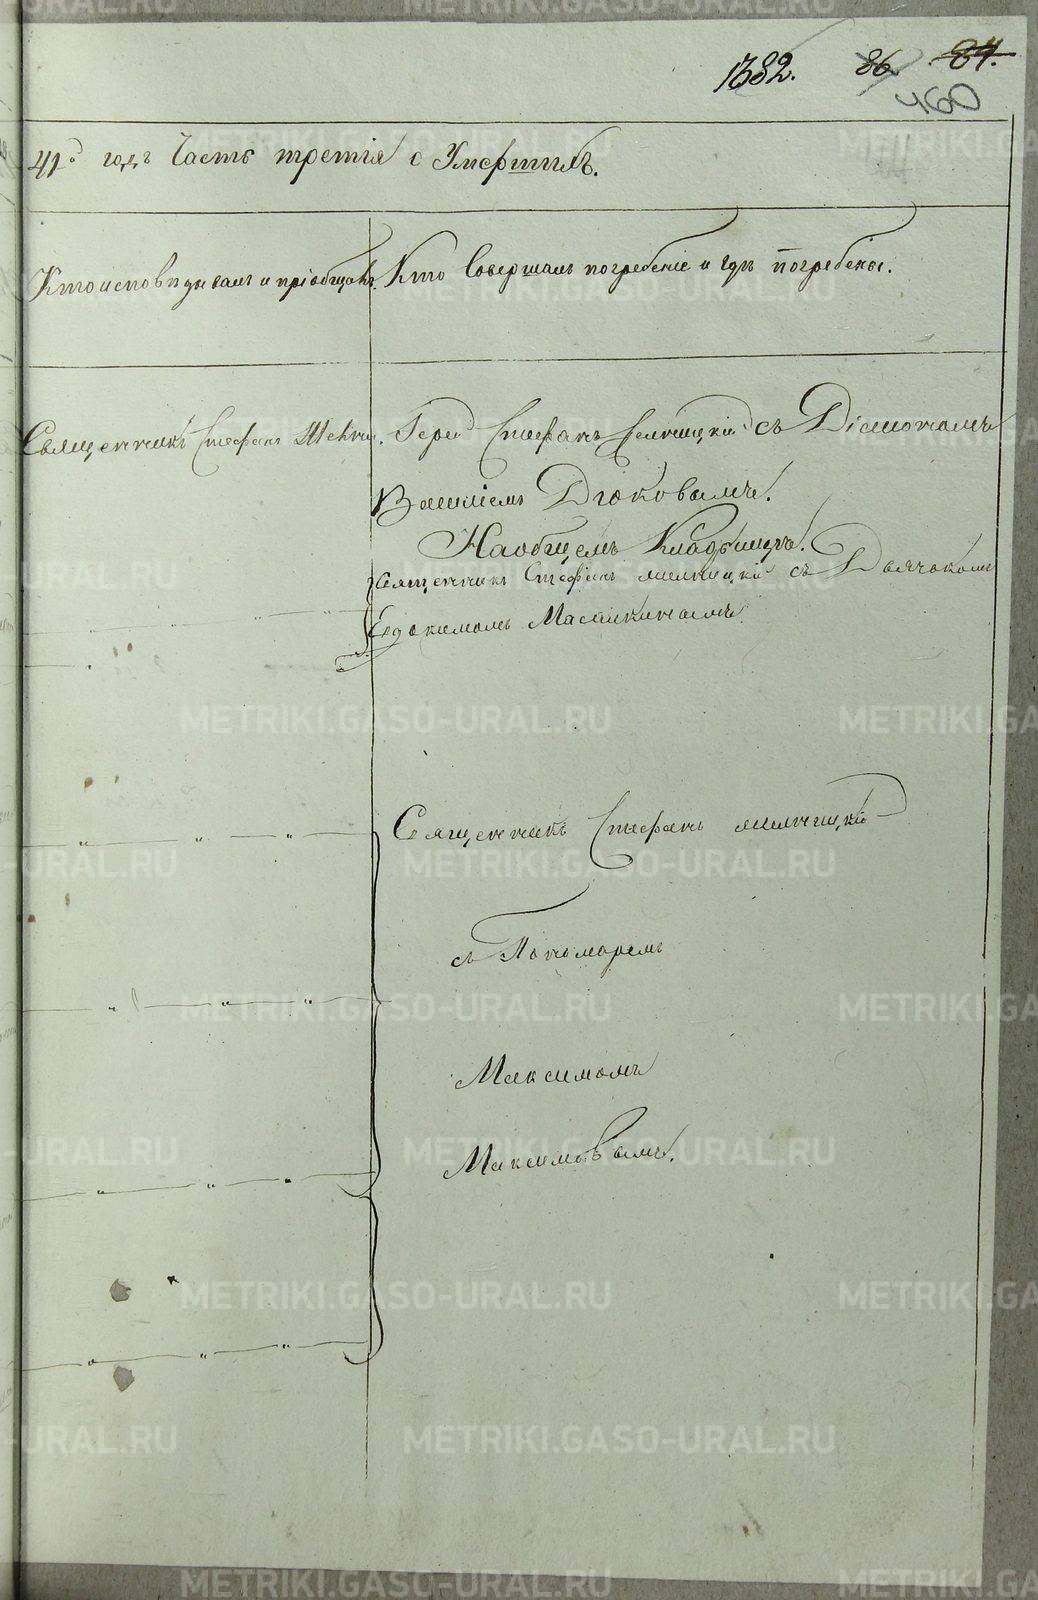 1382. 86. 84.
460
41го годъ Часть третія о Умершихъ.
Кто исповѣдывалъ и пріобщалъ. Кто Совершалъ погребеніе и гдѣ погребены.
Священникъ Стефанъ Іерей Стефанъ съ Діакономъ
Василіемъ Дюковымъ.
На общемъ Кладбищѣ.
Священникъ Стефанъ съ Дьячкомъ
Евдокимомъ
Священникъ Стефанъ
съ Пономаремъ
Максимомъ
Максимовымъ.
METRIKI.GASO-URAL.RU